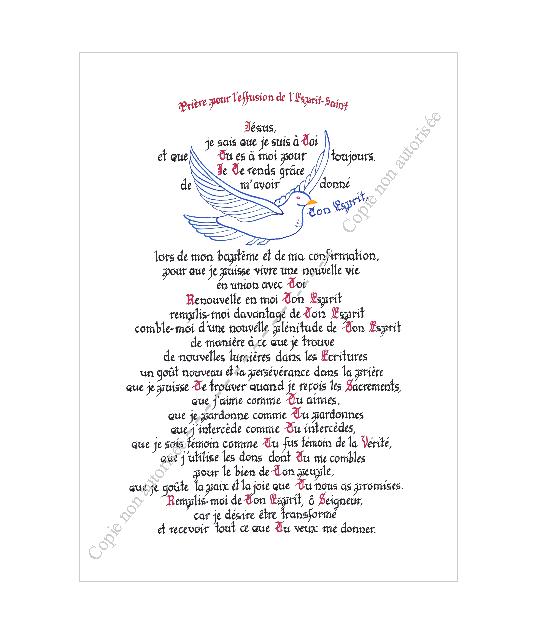 Prière pour l'effusion de l'Esprit-Saint
Jésus,
je sais que je suis à Toi
et que Tu es à moi pour toujours.
Je Te rends grâce
de m'avoir donné
Ton Esprit,
lors de mon baptême et de ma confirmation,
pour que je puisse vivre une nouvelle vie
en union avec Toi
Renouvelle en moi Ton Esprit
remplis-moi davantage de Ton Esprit
comble-moi d'une nouvelle plénitude de Ton Esprit
de manière à ce que je trouve
de nouvelles lumières dans les Ecritures
un goût nouveau et la persévérance dans la prière
que je puisse Te trouver quand je reçois les Sacrements,
que j'aime comme Tu aimes,
que je pardonne comme Tu pardonnes
que j'intercède comme Tu intercèdes,
que je sois témoin comme Tu fus témoin de la Vérité,
que j'utilise les dons dont Tu me combles
pour le bien de Ton peuple,
que je goûte la paix et la joie que Tu nous as promises.
Remplis-moi de Ton Esprit, ô Seigneur,
car je désire être transformé
et recevoir tout ce que Tu veux me donner.
Copie non autorisée
Copie non autorisée